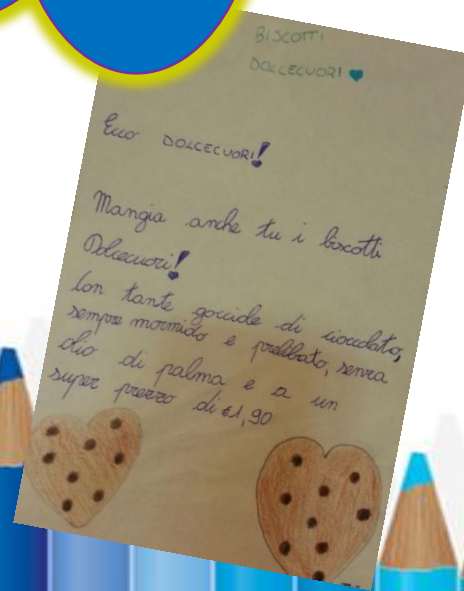 BISCOTTI
DOLCECUORI
Ecco DOLCECUORI!
Mangia anche tu i biscotti
Dolcecuori!
Con tante goccide di cioccolato,
sempre mormido e prelibato, senza
olio di palma e a un
super prezzo di €1,90